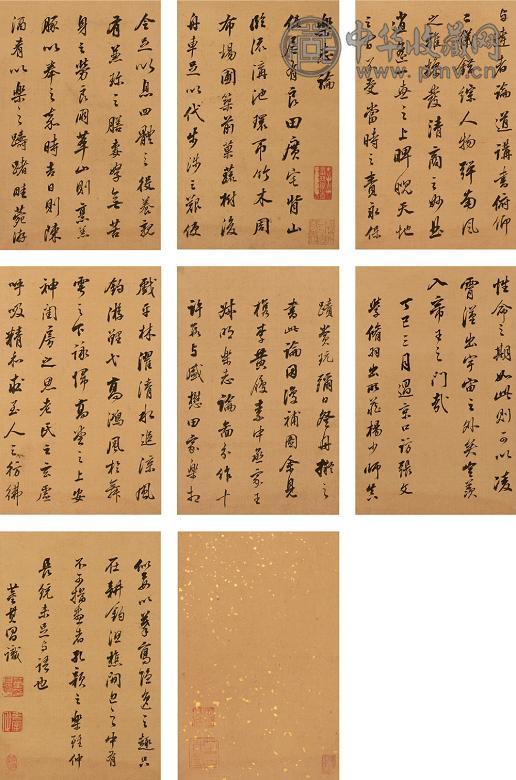 中华收藏网
樂志論
使居有良田廣宅背山
臨流溝池環帀竹木周
布場圃築前菓蔬樹後
舟車足以代步涉之難使
令足以息四體之役養親
有兼珍之膳妻孥無苦
身之勞良朋萃止則烹羔
豚以奉之嘉時吉日則陳
酒肴以樂之躊躇畦苑游
戲平林濯清水追涼風
釣游鯉弋高鴻風於舞
雩之下詠歸高堂之上安
神閨房之思老氏之玄虛
呼吸精和求至人之彷彿
與達者論道講書俯仰
二儀錯綜人物彈南風
之雅操發清商之妙曲
逍遙一世之上睥睨天地
之間不受當時之責永保
性命之期如此則可以凌
霄漢出宇宙之外矣豈羨
入帝王之門哉
丁巳三月過京口訪張文
學脩羽出所藏楊少師真
蹟賞玩彌日登舟擬之
書此論因復補圖余見
檇李黃履素中丞家王
叔明樂志論畵卷作十
許與盛懋田家樂相
似要以摹寫隱逸之趣只
在耕釣沮樵間也之中有
不可描畫者孔顏之樂雖仲
長統未足與語也
董其昌識